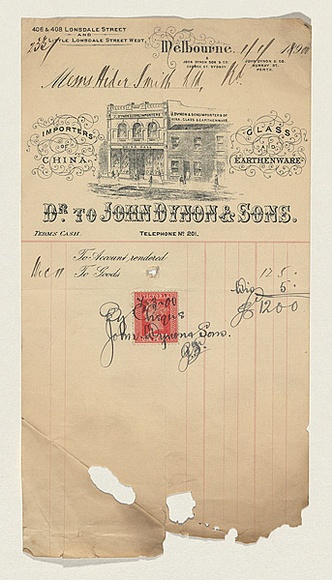 406 & 408 LONSDALE STREET
AND
LITTLE LONSDALE STREET WEST,
Melbourne, 1/4/1900
JOHN DYNON SON & CO.
CLARENCE ST. SYDNEY
JOHN DYNON & CO.
MURRAY ST.
PERTH.
Messrs Smith
J. DYNON & SONS IMPORTERS
J. DYNON & SONS IMPORTERS OF
CHINA, GLASS & EARTHENWARE
IMPORTERS
OF
CHINA.
GLASS
AND
EARTHENWARE
DR TO JOHN DYNON & SONS.
TERMS CASH.
TELEPHONE No 201.
To Account rendered
To Goods
12 5
5
£12 0 0
VICTORIA
By Cheque
John Dynon & Sons.